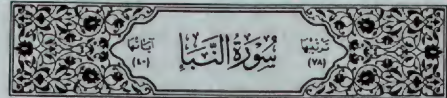 ترتيبها
(٧٨)
سُورَةُ النَّبَإِ
آياتها
(٤٠)